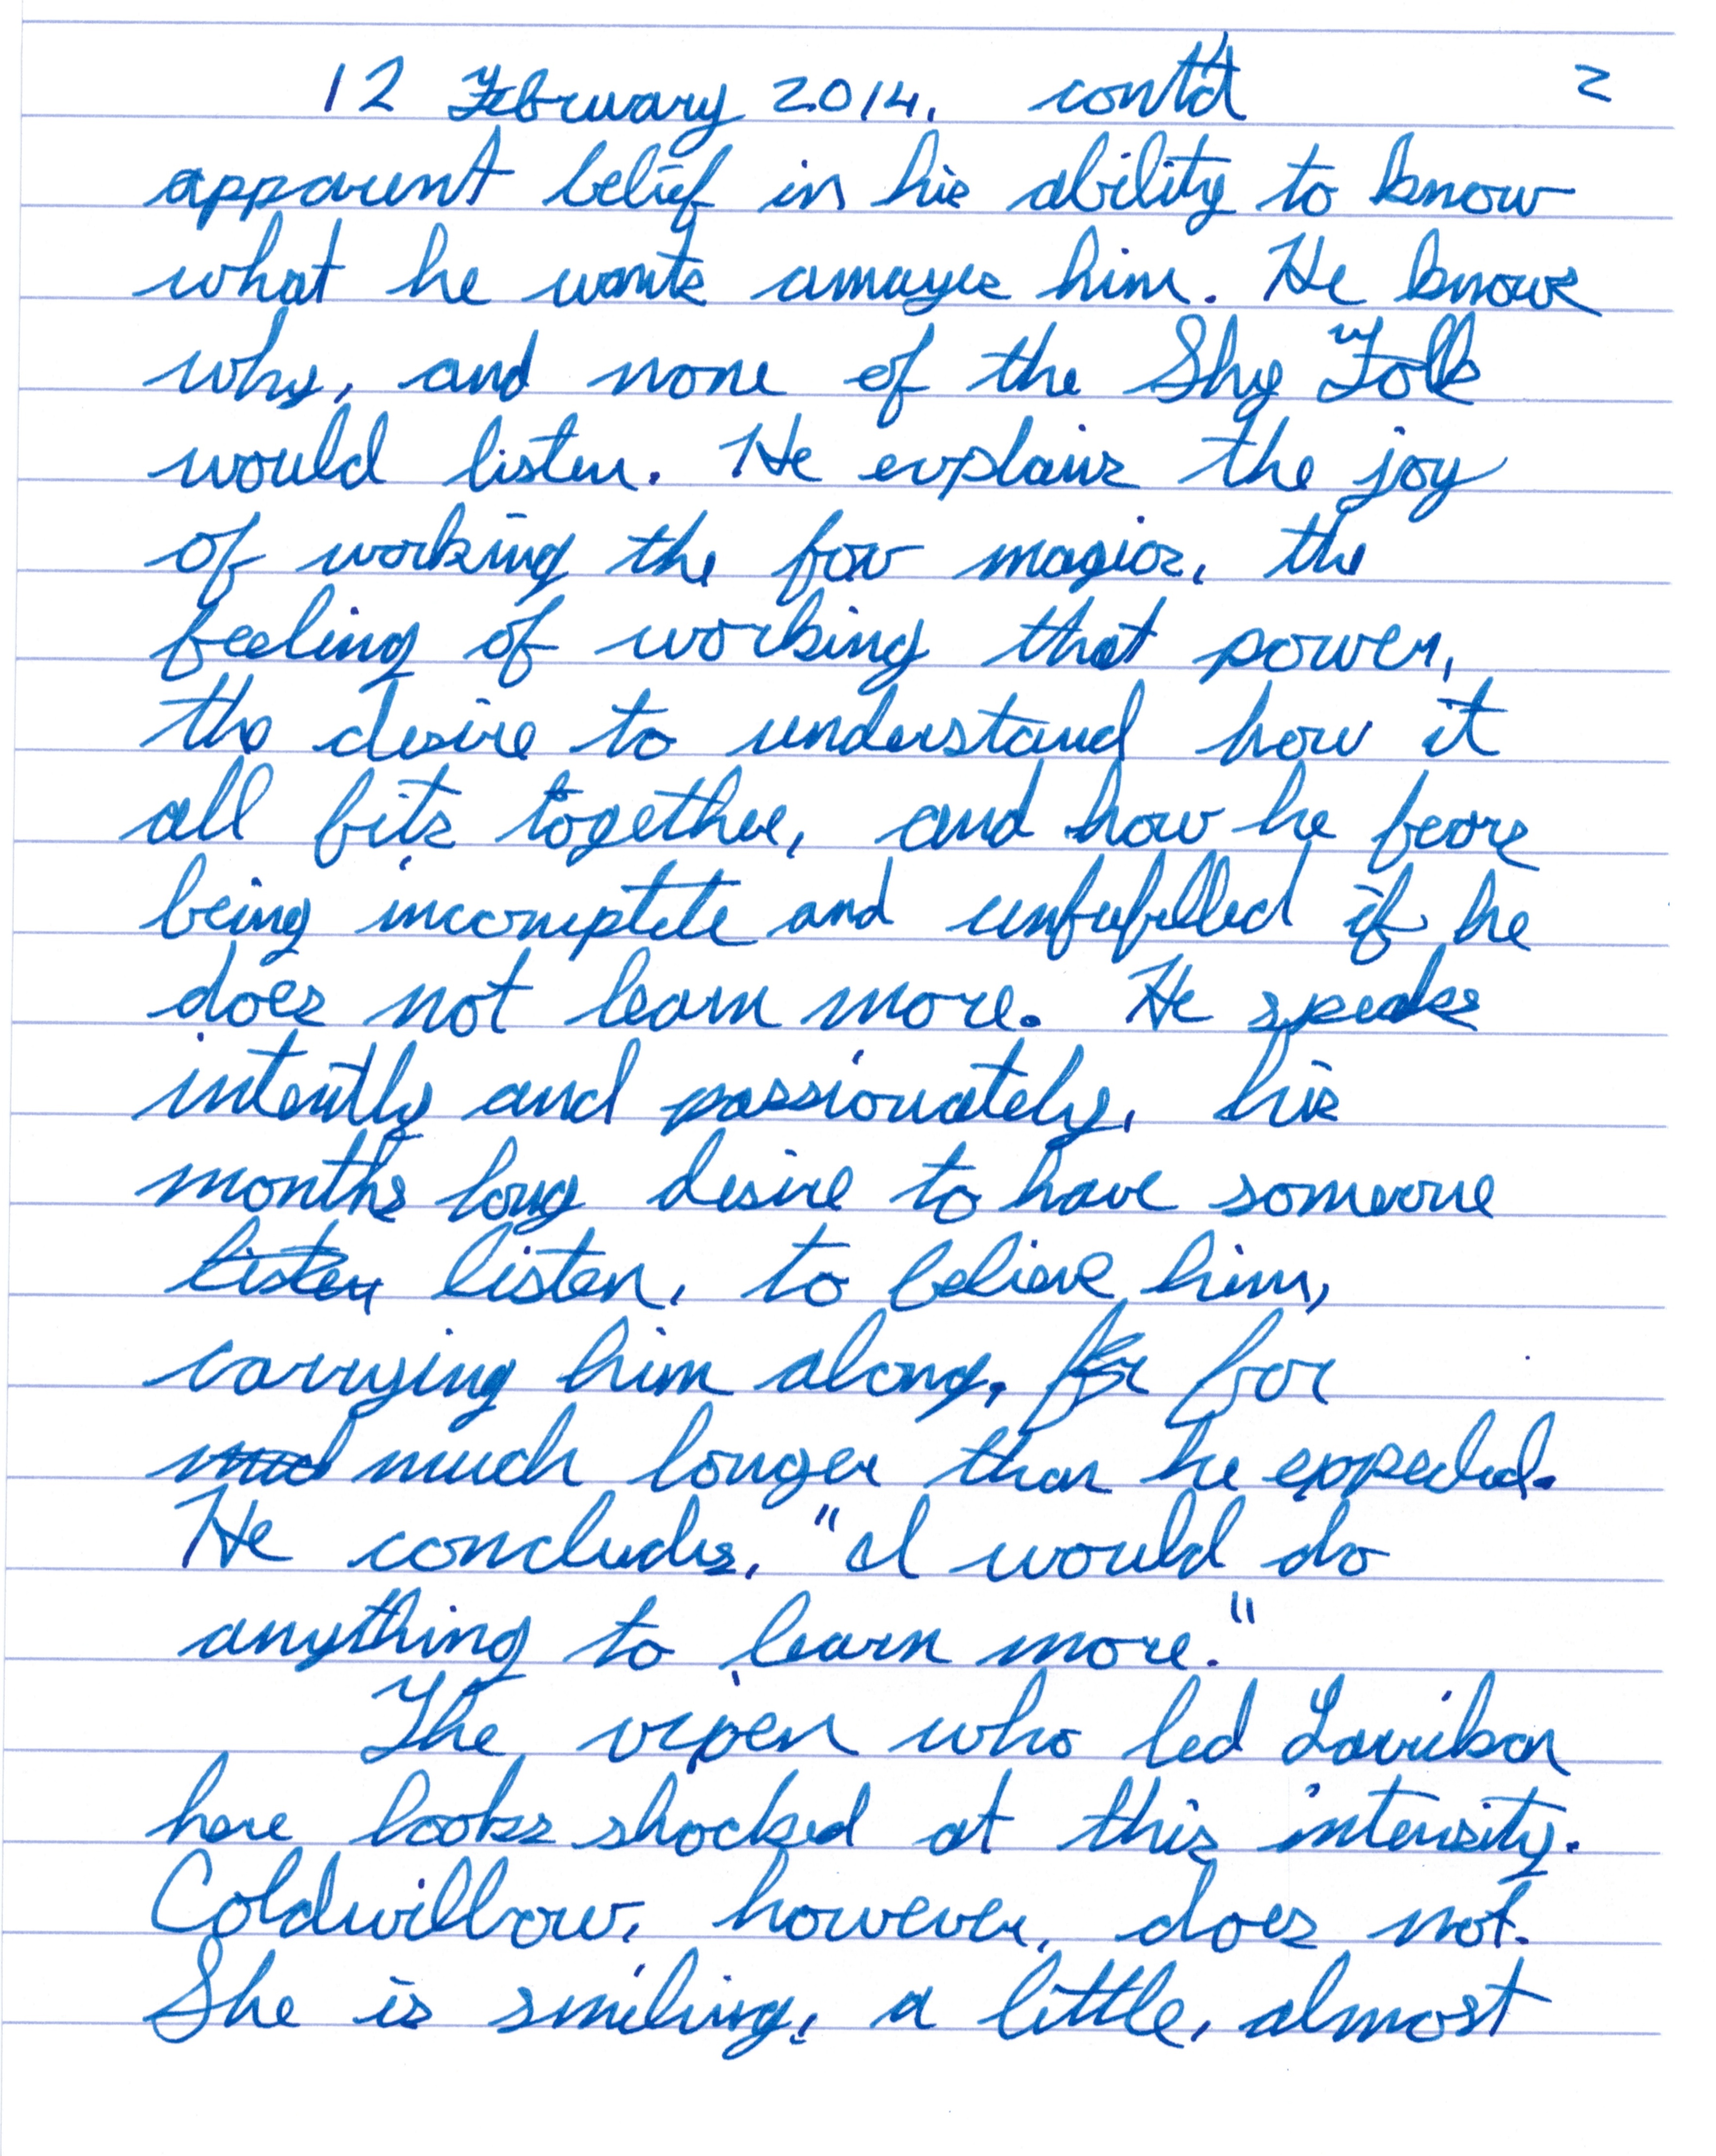 12 February 2014. cont'd 2
apparent belief in his ability to know
what he wants amazes him. He knows
why, and none of the Shy Folk
would listen. He explains the joy
of working the few magics, the
feeling of working that power,
the desire to understand how it
all fits together, and how he fears
being incomplete and unfufilled if he
does not learn more. He speaks
intently and passionately, his
months long desire to have someone
listen listen, to believe him,
carrying him along, for for
much longer than he expected.
He concludes, "I would do
anything to learn more."
The viper who led
here looks shocked at this intensity.
Coldwillow, however, does not.
She is smiling, a little, almost